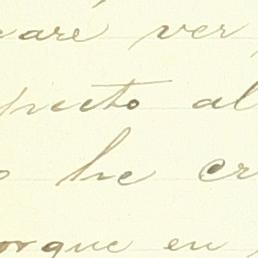 care ver
pecto al
o he cr
orque en